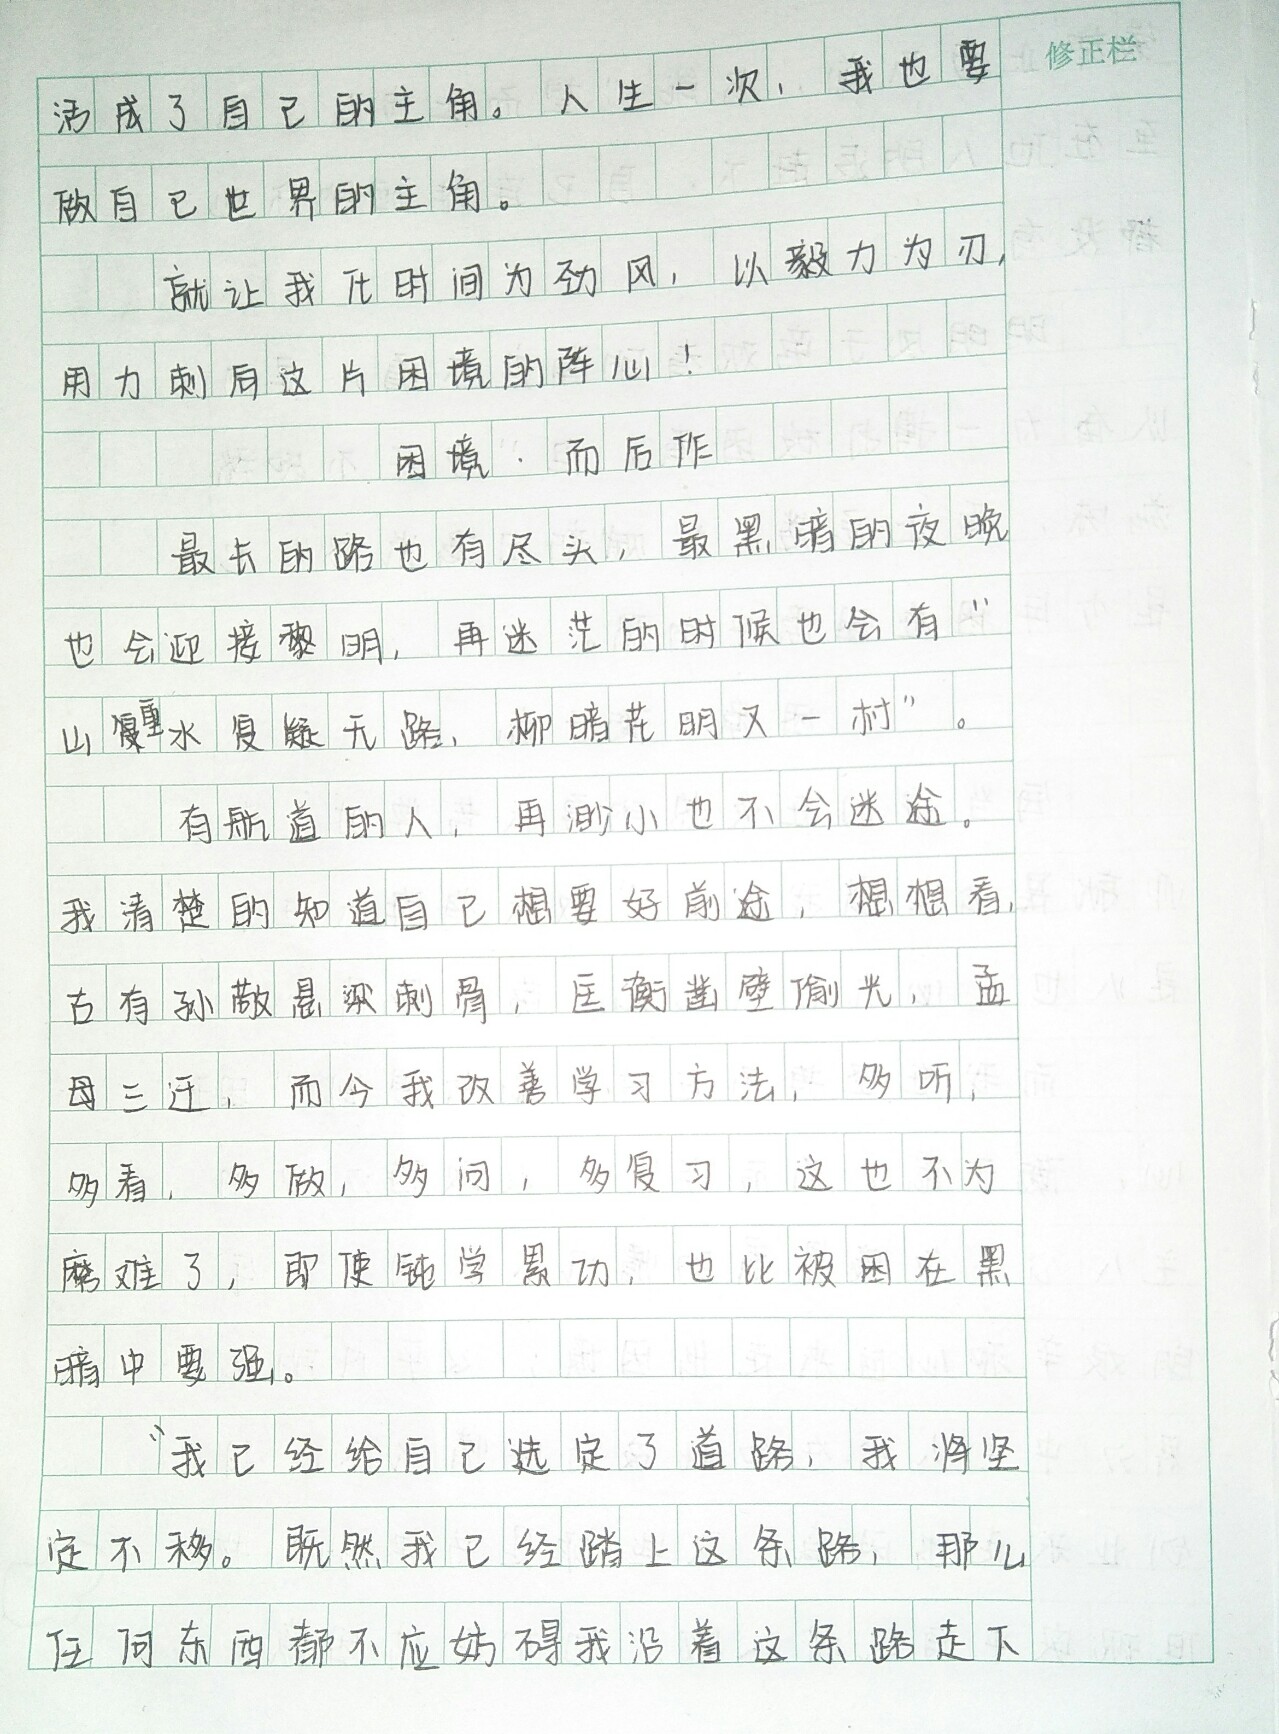 修正栏
活成了自己的主角。人生一次，我也要
做自己世界的主角。
就让我化时间为劲风，以毅力为刃，
用力刺肩这片困境的阵心！
困境·而后作
最长的路也有尽头，最黑暗的夜晚
也会迎接黎明，再迷茫的时候也会有“
山重水复疑无路，柳暗花明又一村”。
有航道的人，再渺小也不会迷途。
我清楚的知道自己想要好前途，想想看，
古有孙敬悬梁刺骨，匡衡凿壁偷光，孟
母三迁，而今我改善学习方法，多听，
多看，多做，多问，多复习，这也不为
磨难了，即使钝学累功，也比被困在黑
暗中要强。
“我已经给自己选定了道路，我将坚
定不移。既然我已经踏上这条路，那么
任何东西都不应妨碍我沿着这条路走下